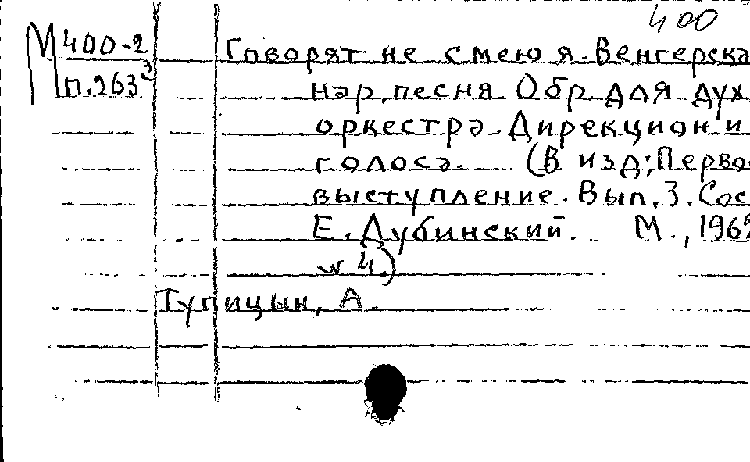 400
М 400-2 Говорят не смею я. Венгерска
п.263³ нар. песня Обр для дух
оркестра. Дирекцион и
голоса. (В изд.: Перво
выступление. Вып. 3. Сос
Е. Дубинский. М., 196
№ 4.)
Тупицын, А.